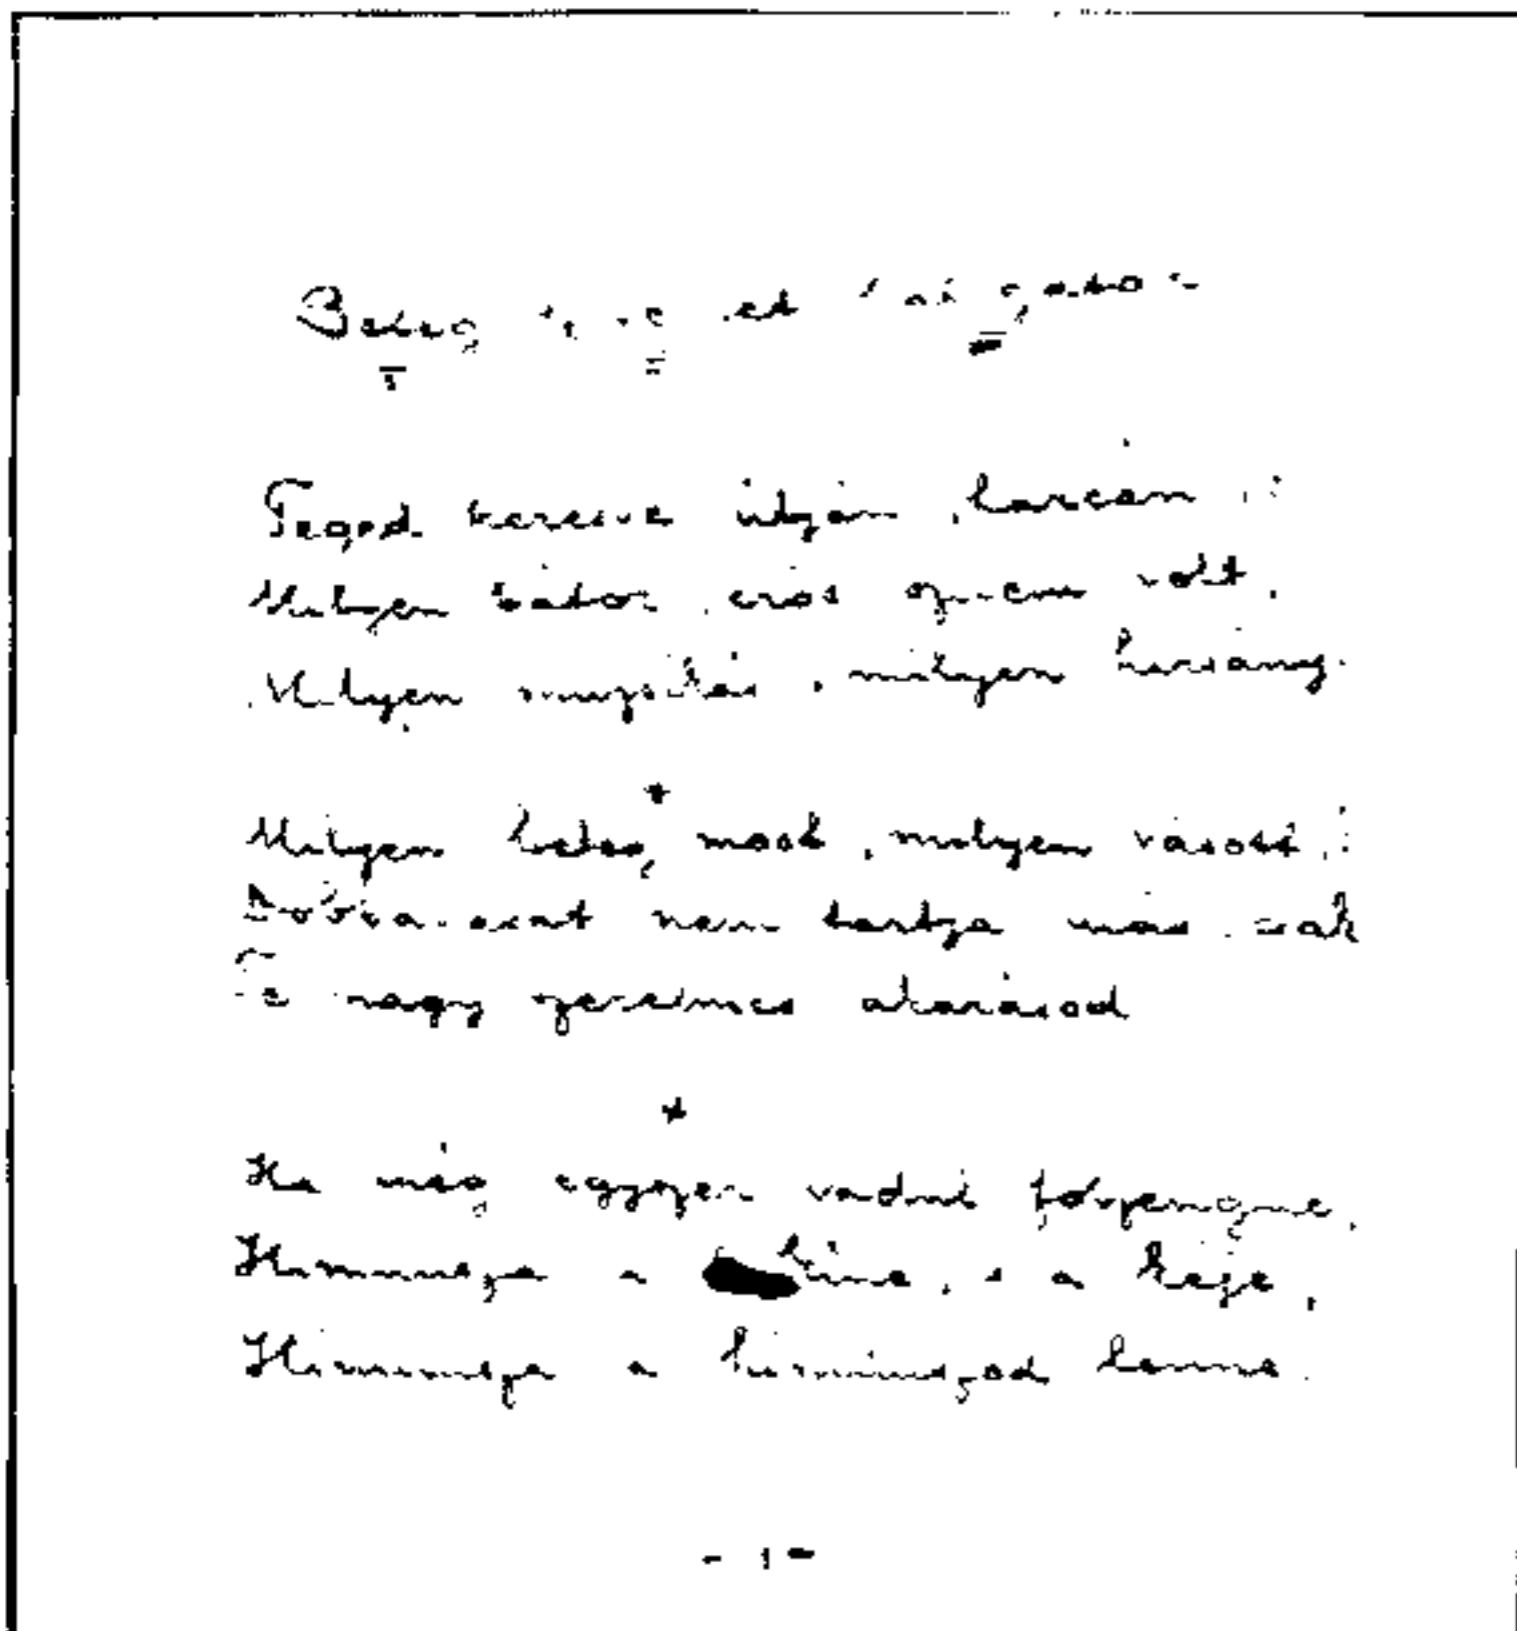 Beteg szivemet hallgatom
Téged keresve útján, harcán
Milyen bátor, erős szivem volt,
Milyen muzsikás, milyen harsány.
Milyen beteg most, milyen vásott
nem tartja más, csak
Te nagy szerelmes akarásod
Ha még egyszer vadul fölzengne,
Himnusza a kíné, s a kéjé,
Himnusza a himnuszod lenne.